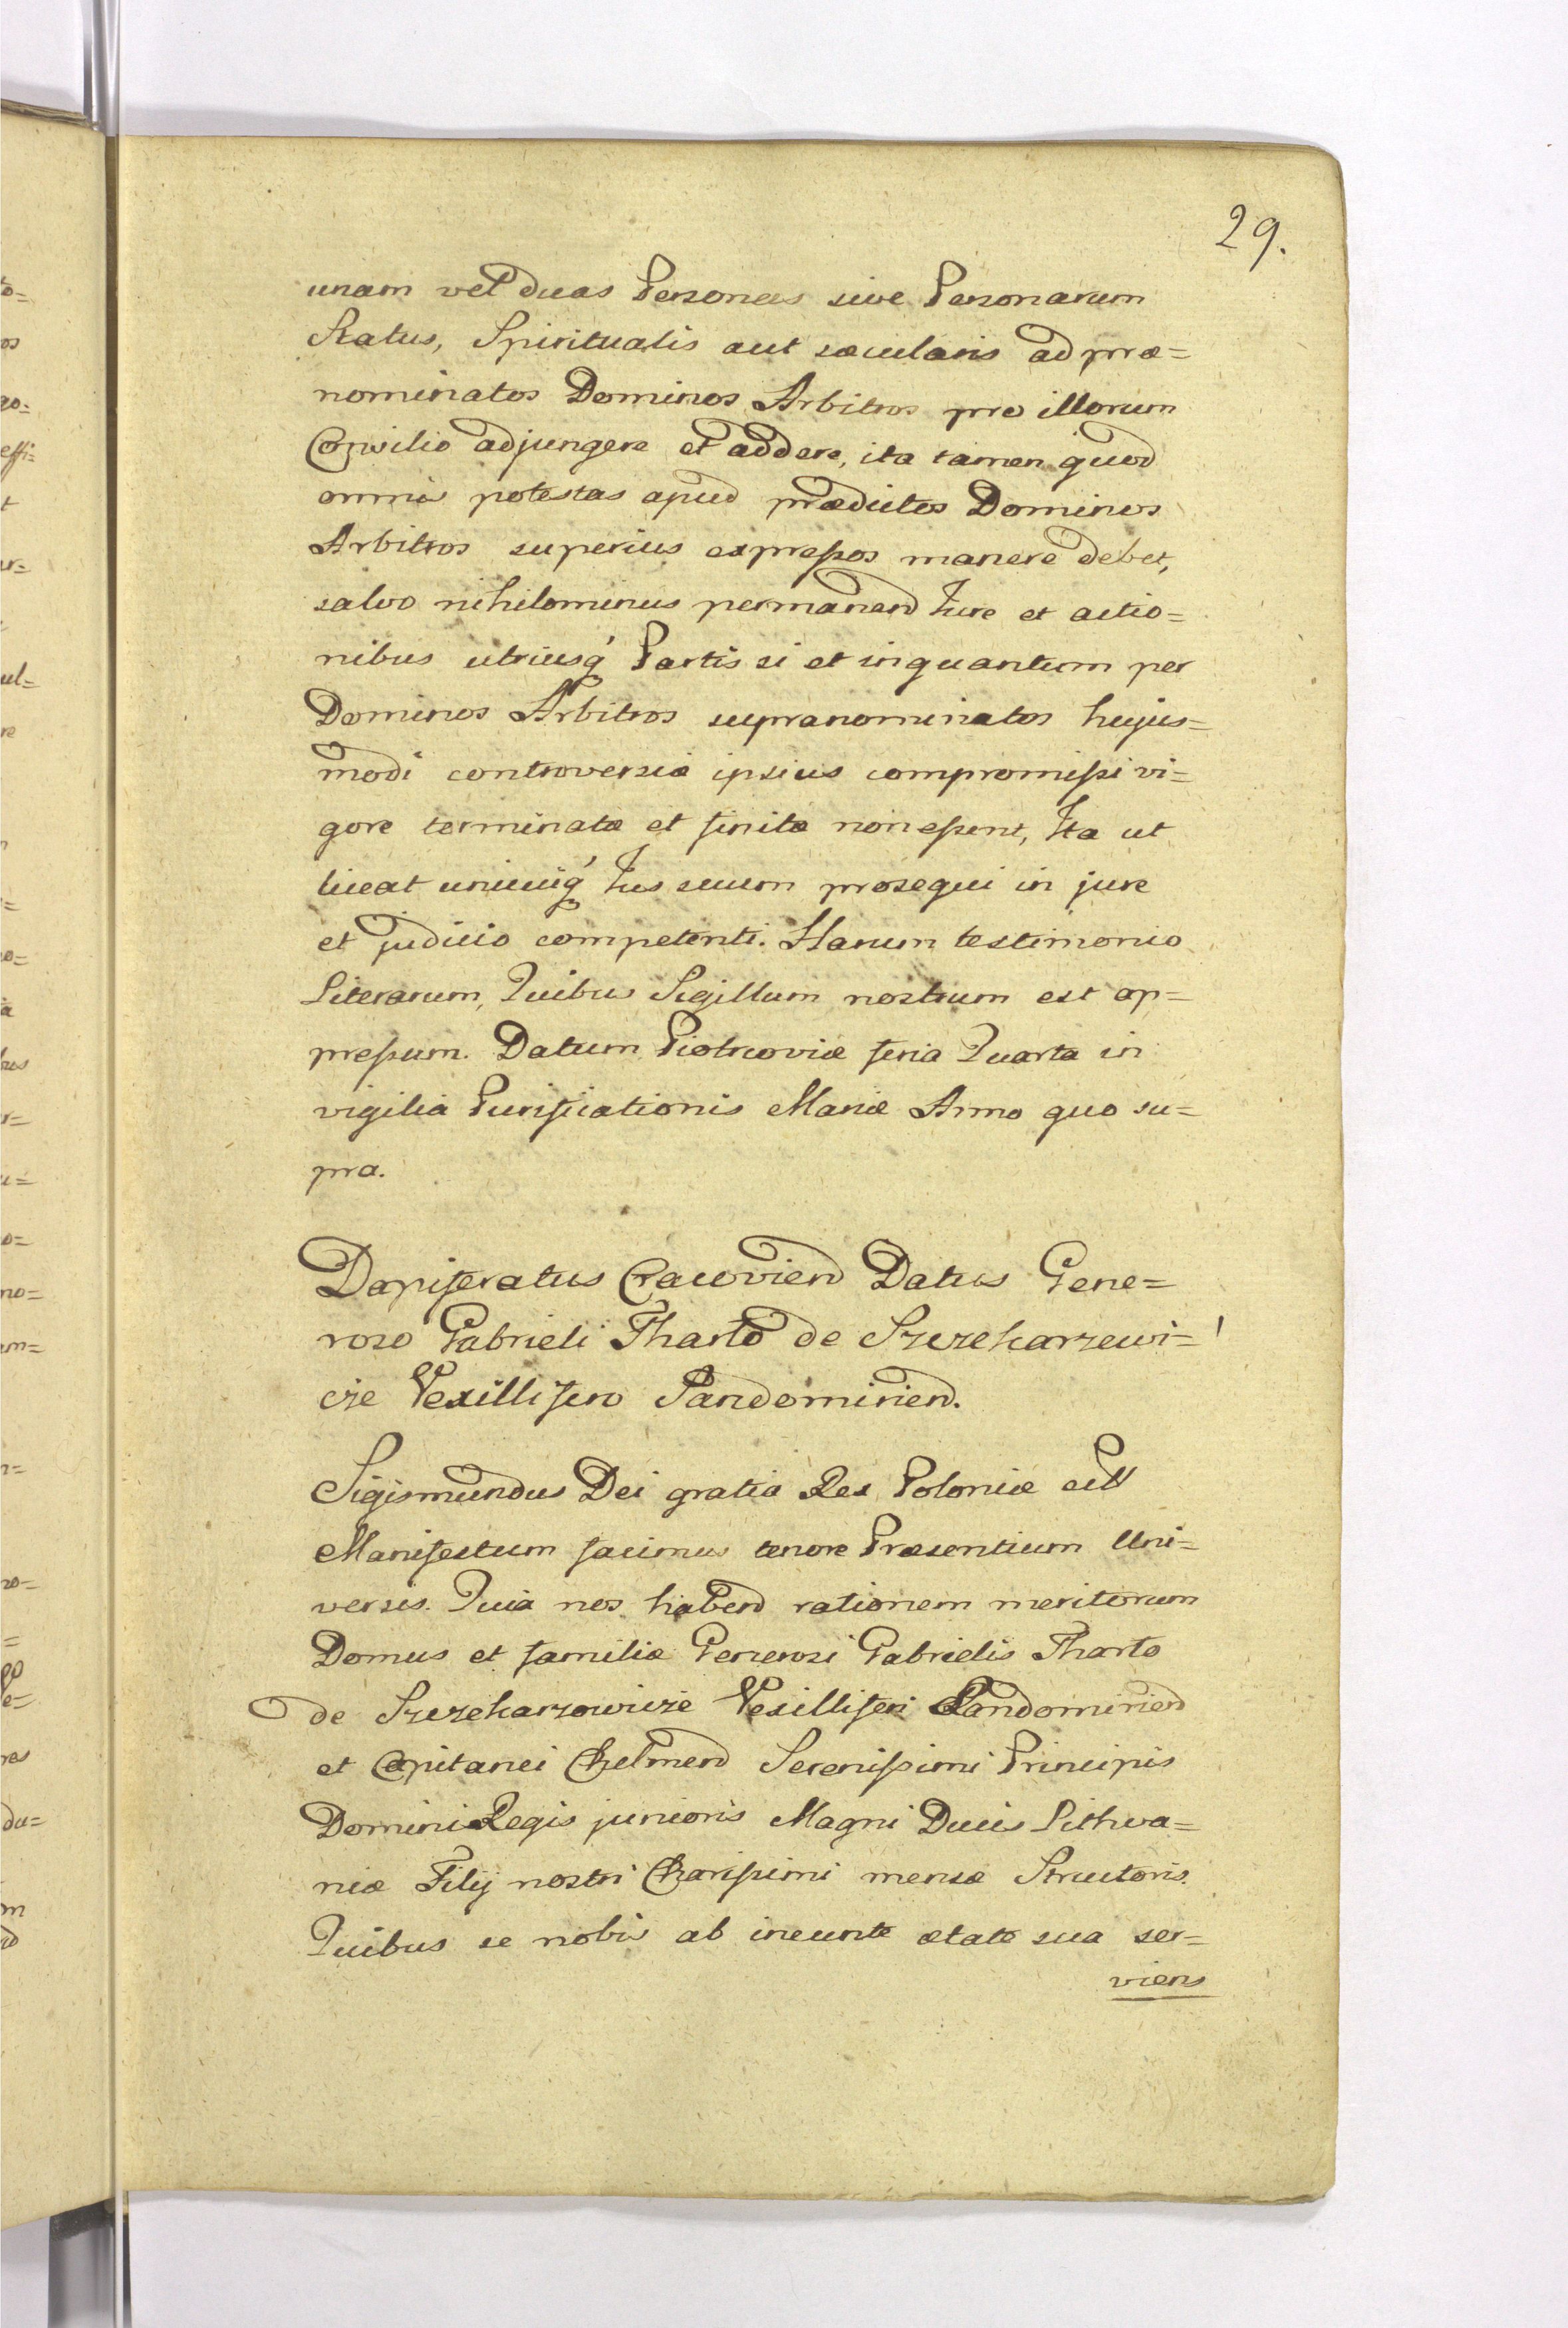 29.
unam vel duas Personas sive Personarum
Status, Spiritualis aut sæcularis ad præ=
nominatos Dominos Arbitros pro illorum
Consilio adjungere et addere, ita tamen quod
omnis potestas apud prædictos Dominos
Arbitros superius expressos manere debet,
salvo nihilominus permanend Jure et actio=
nibus utriusq́ Partis si et inquantum per
Dominos Arbitros supranominatos hujus=
modi controversiæ ipsius compromissi vi=
gore terminatæ et finitæ non essent, Ita ut
liceat unicuiq́ Jus suum prosequi in jure
et judicio competenti. Harum testimonio
Literarum, Quibus Sigillum nostrum est ap=
pressum. Datum Piotrcoviæ feria Quarta in
vigilia Purificationis Mariæ Anno quo su=
pra.
Dapiferatus Cracoviend Datus Gene=
roso Gabrieli Tharło de Szczekarzewi=
cze Vexillifero Sandomiriend.
Sigismundus Dei gratia Rex Poloniæ ett
Manifestum facimus tenore Præsentium Uni=
versis. Quia nos habend rationem meritorum
Domus et familiæ Generosi Gabrielis Tharło
de Szczekarzowicze Vexilliferi Sandomiriend
et Capitanei Chelmend Serenissimi Principis
Domini Regis junioris Magni Ducis Lithva=
niæ Filij nostri Charissimi mensæ Structoris.
Quibus se nobis ab ineunte ætate sua ser=
viens